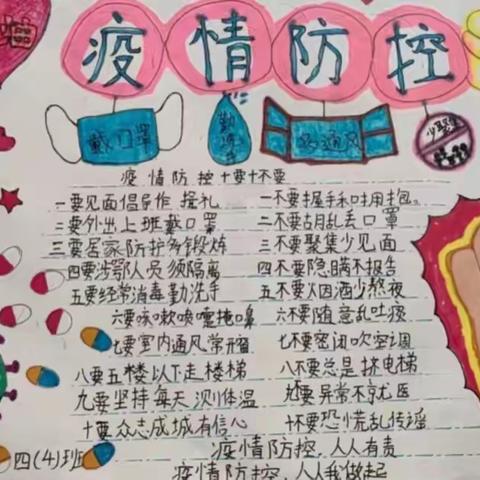 疫情防控
戴口罩
勤洗手
多通风
少聚集
疫情防控十要十不要
一要见面倡导作揖礼
一不要握手和拥抱。
二要外出上班戴口罩
二不要胡乱丢口罩
三要居家防护多锻炼
三不要聚集少见面
四要涉鄂人员须隔离
四不要隐瞒不报告
五要经常消毒勤洗手
五不要烟酒少熬夜
六要咳嗽喷嚏掩口鼻
六不要随意乱吐痰
七要室内通风常开窗
七不要密闭吹空调
八要五楼以下走楼梯
八不要总是挤电梯
九要坚持每天测体温
九要异常不就医
十要众志成城有信心
十不要恐慌乱传谣
疫情防控,人人有责
四(4)班
疫情防控,人人我做起